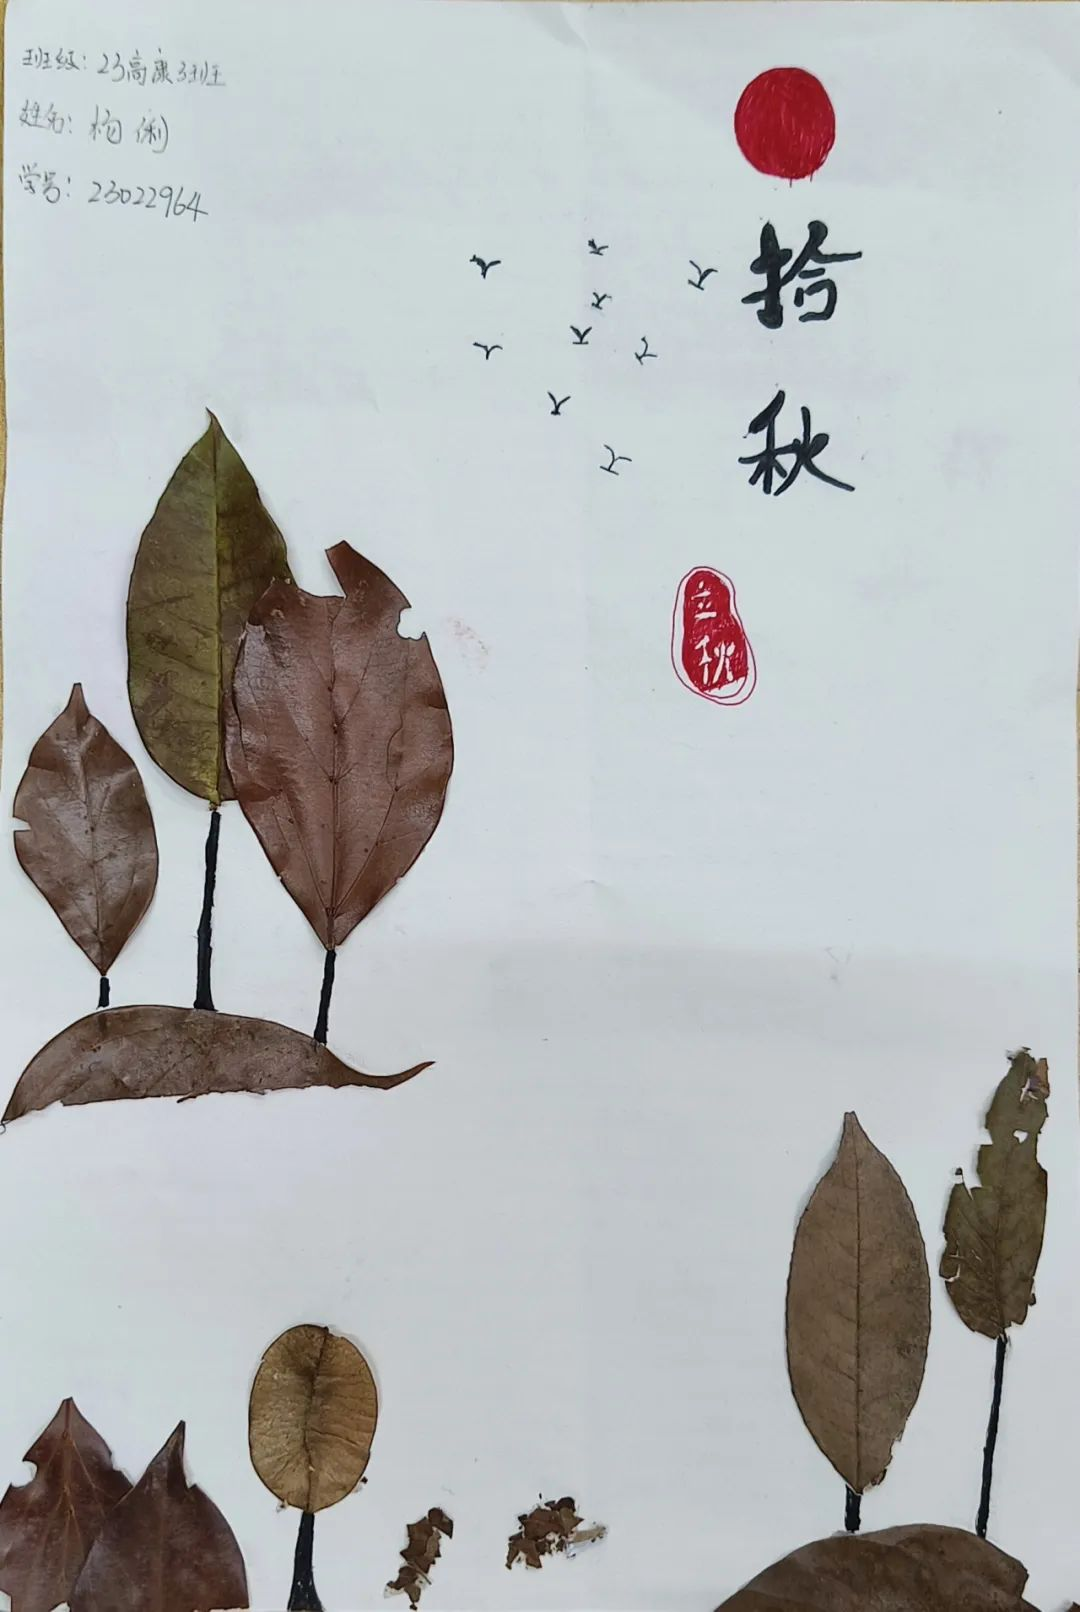 班级：23高康3班
姓名：杨俐
学号：23022964
拾秋
立秋